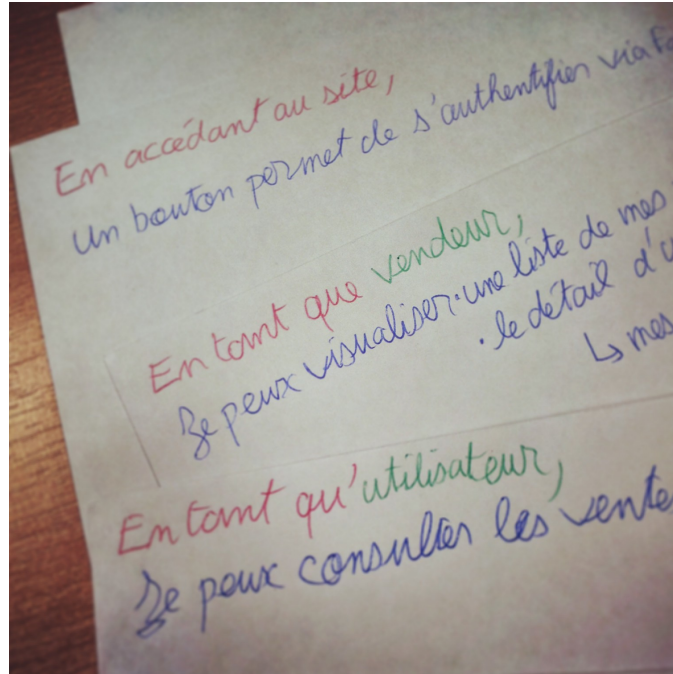 En accédant au site,
Un bouton permet de s'authentifier via
En tant que vendeur,
Je peux visualiser • une liste de mes
• le détail
↳ mes
En tant qu'utilisateur,
Je peux consulter les